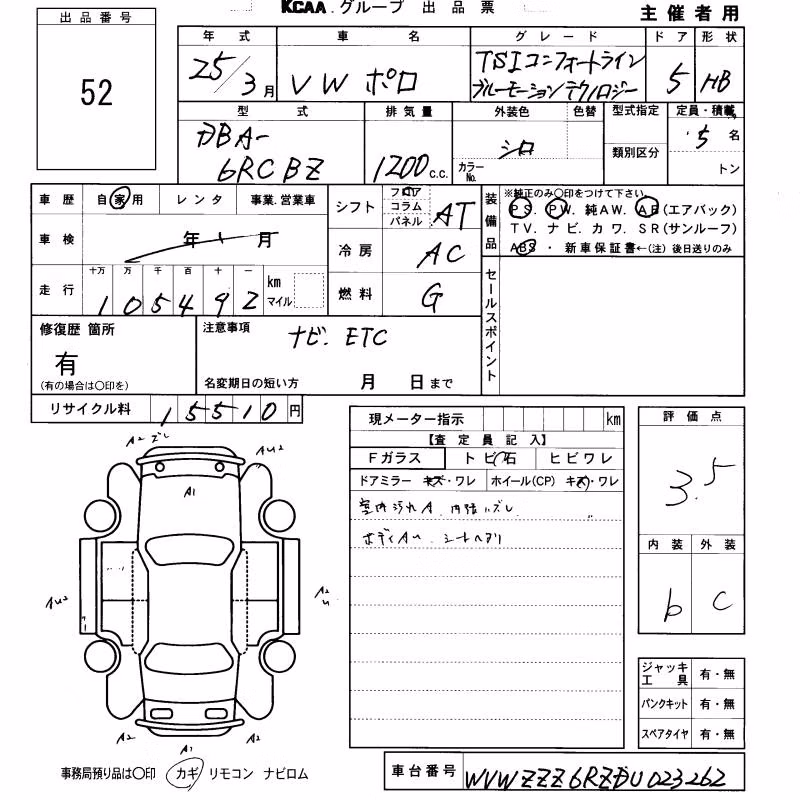 KCAA.グループ 出品票
主催者用
出品番号
52
年式 車名 グレード ドア 形状
25/3月 VW ポロ TSIコンフォートライン 5 HB
ブルーモーションテクノロジー
型式 排気量 外装色 色替 型式指定 定員・積載
DBA- 5名
6RCBZ 1200 c.c. シロ カラーNo. 類別区分 トン
車歴 自家用 レンタ 事業.営業車
車検 年 月
走行 十万 万 千 百 十 一
105492 km マイル
シフト フロア コラム パネル AT
冷房 AC
燃料 G
装備品
※純正のみ○印をつけて下さい。
PS. PW. 純AW. AB(エアバック)
TV. ナビ. カワ. SR(サンルーフ)
ABS ・ 新車保証書←(注) 後日送りのみ
セールスポイント
修復歴 箇所
有
(有の場合は○印を)
注意事項
ナビ. ETC
名変期日の短い方 月 日まで
リサイクル料 15510円
現メーター指示 km
【査定員記入】
Fガラス トビ石 ヒビワレ
ドアミラー キズ・ワレ ホイール(CP) キズ・ワレ
室内汚れA 内張ハズレ
ボディAU シートヘタリ
評価点
3.5
内装 外装
b C
A2 ズレ
AU2
A1
AU2
A2
A2
A1
A2
ジャッキ工具 有・無
パンクキット 有・無
スペアタイヤ 有・無
事務局預り品は○印 カギ リモコン ナビロム
車台番号 WVWZZZ6RZDU023262